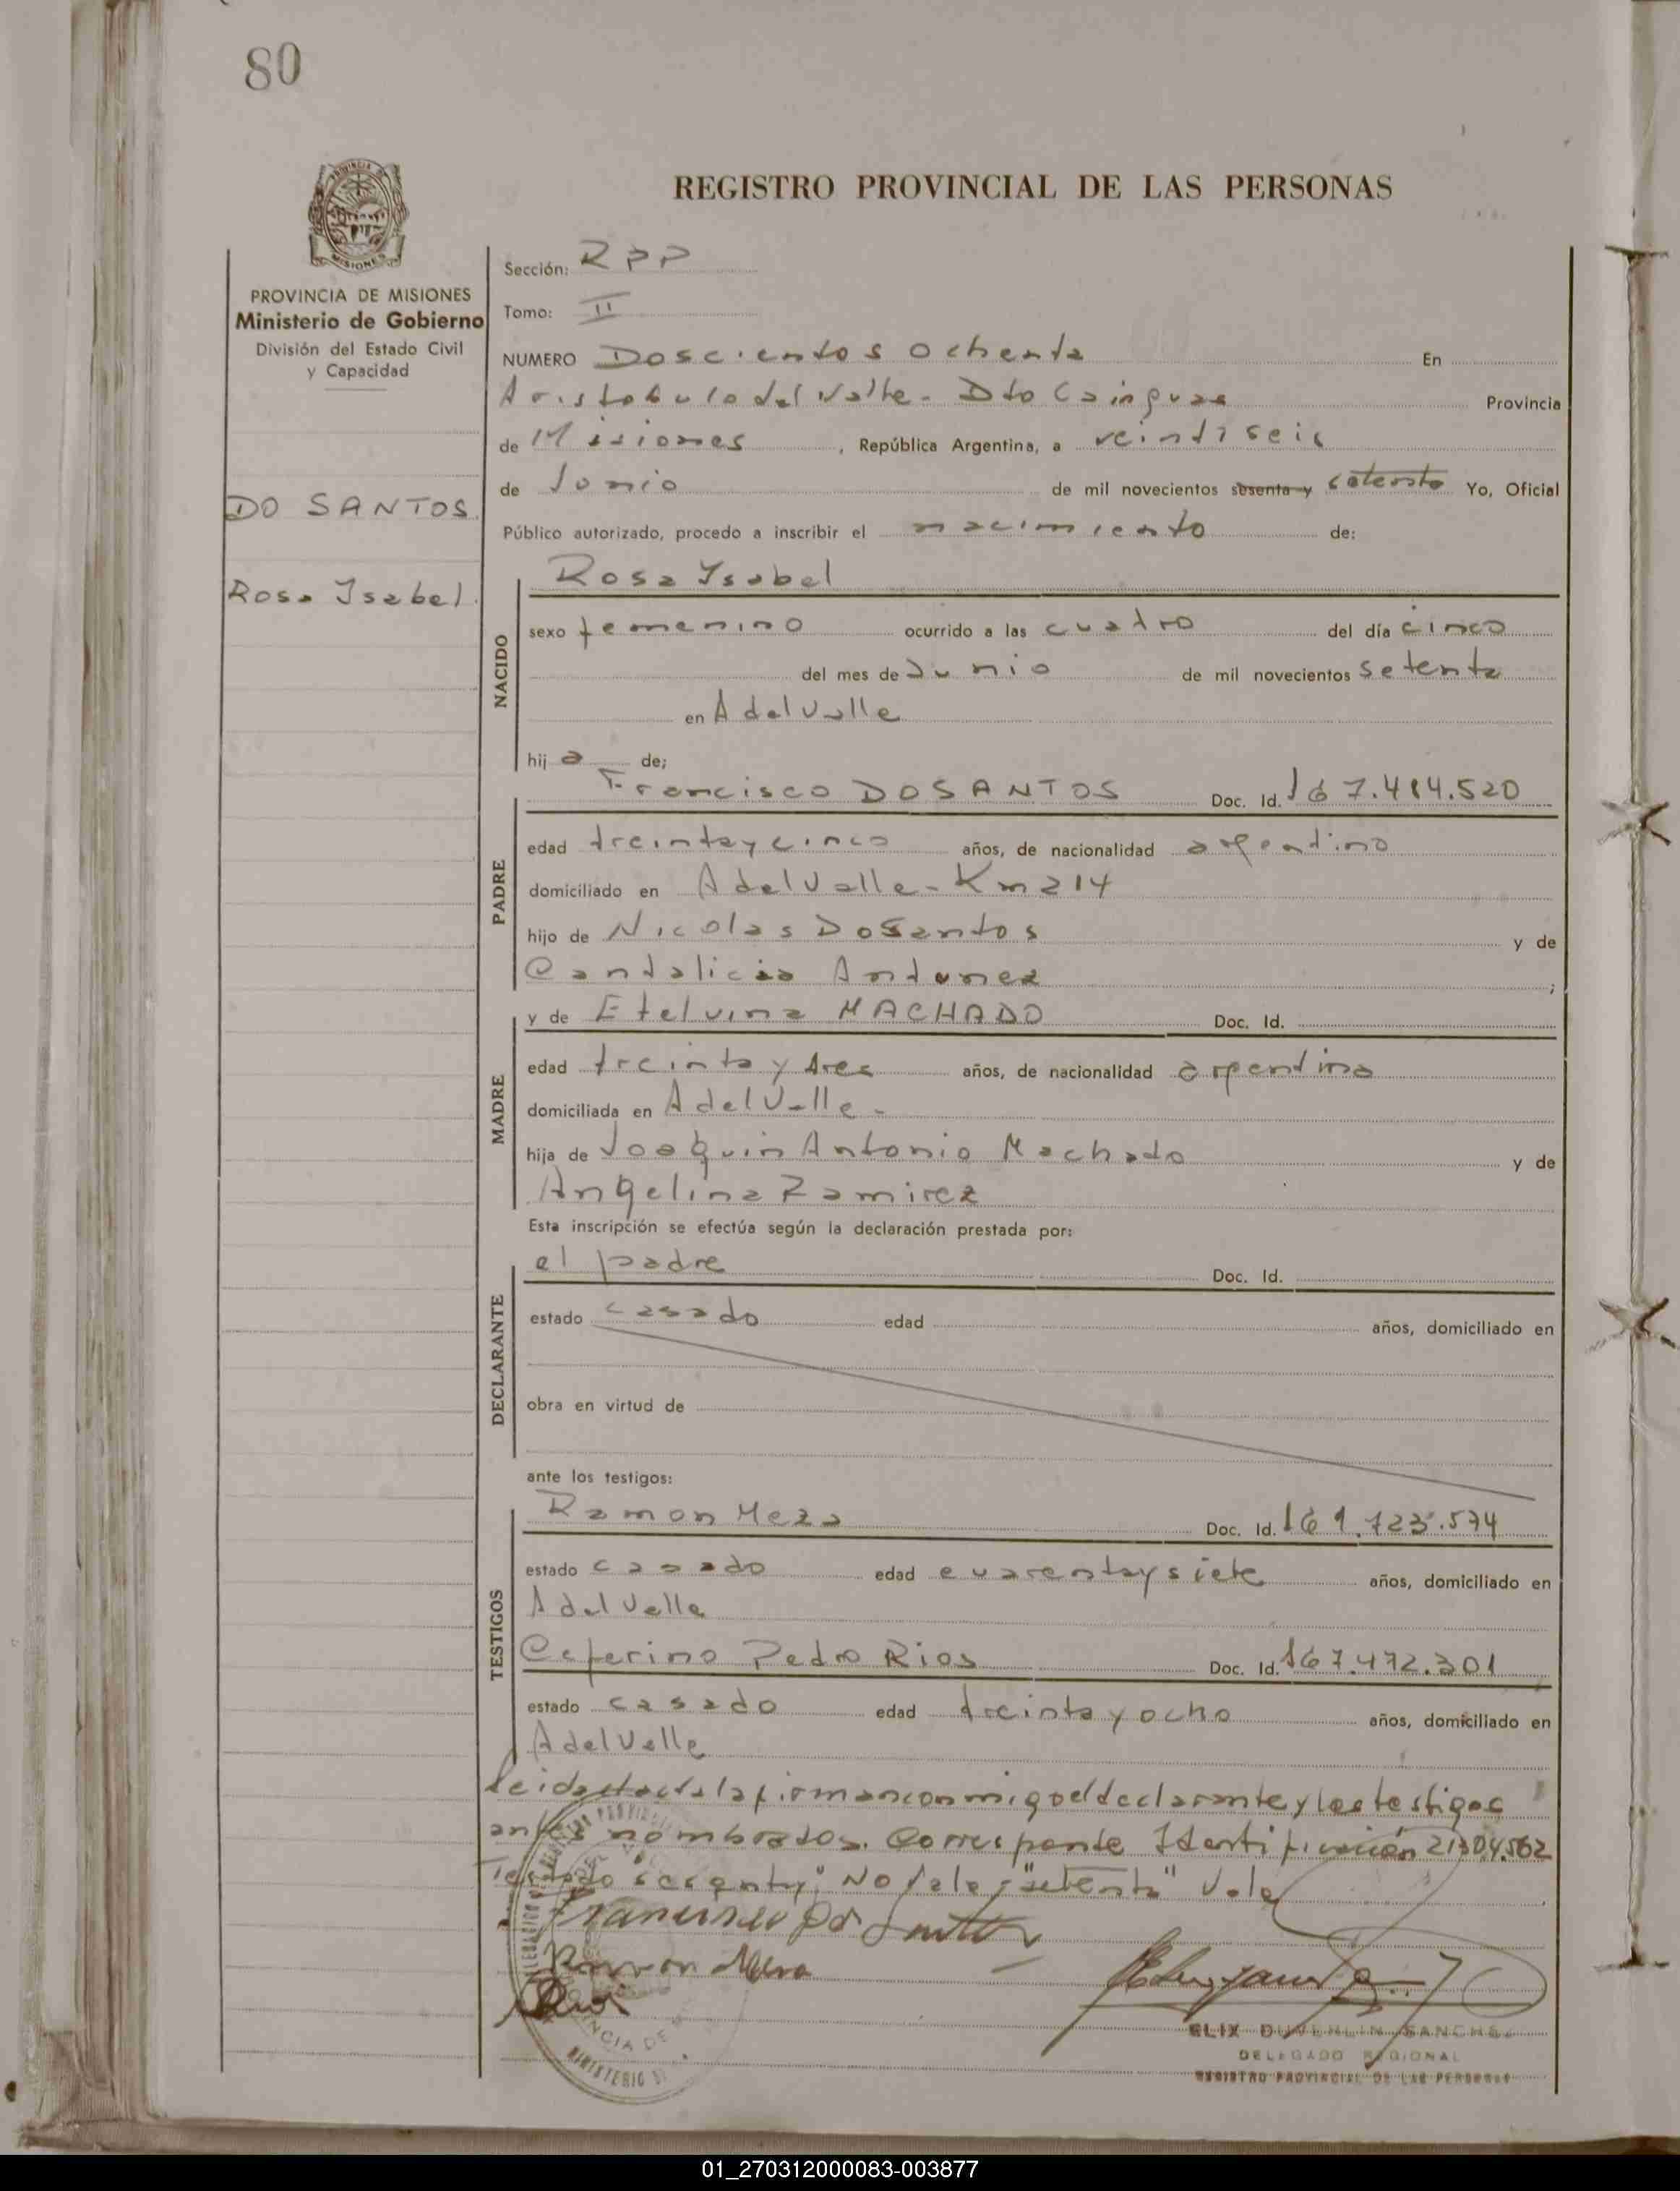 80
REGISTRO PROVINCIAL DE LAS PERSONAS
MISIONES
PROVINCIA DE MISIONES
Ministerio de Gobierno
División del Estado Civil
y Capacidad
DO SANTOS
Rosa Isabel
Sección: RPP
Tomo: II
NUMERO Doscientos ochenta En
Aristobulo del Valle - Dto Cainguas Provincia
de Misiones, República Argentina, a veintiseis
de Junio de mil novecientos sesenta y setenta Yo, Oficial
Público autorizado, procedo a inscribir el nacimiento de:
Rosa Ysabel
NACIDO
sexo femenino ocurrido a las cuatro del día cinco
del mes de Junio de mil novecientos setenta
en A del Valle
hij a de;
PADRE
Francisco DO SANTOS Doc. Id. 167.414.520
edad treinta y cinco años, de nacionalidad argentino
domiciliado en A del Valle - Km 214
hijo de Nicolas Do Santos y de
Candalicia Antunez ;
MADRE
y de Etelvina MACHADO Doc. Id.
edad treinta y tres años, de nacionalidad argentina
domiciliada en A del Valle -
hija de Joaquin Antonio Machado y de
Angelina Ramirez
Esta inscripción se efectúa según la declaración prestada por:
DECLARANTE
el padre Doc. Id.
estado casado edad años, domiciliado en
obra en virtud de
ante los testigos:
TESTIGOS
Ramon Meza Doc. Id.
estado casado edad cuarenta y siete años, domiciliado en
A del Valle
Ceferino Pedro Rios Doc. Id. 167.472.301
estado casado edad treinta y ocho años, domiciliado en
A del Valle
leida el acta la firman conmigo el declarante y los testigos
antes nombrados. Corresponde Identificación 21.304.562
Testado "sesenta y" No vale; "setenta" Vale
Francisco Do Santos
Ramon Meza
Rios
ELIX DUVERLIN SANCHEZ
DELEGADO REGIONAL
REGISTRO PROVINCIAL DE LAS PERSONAS
01_270312000083-003877